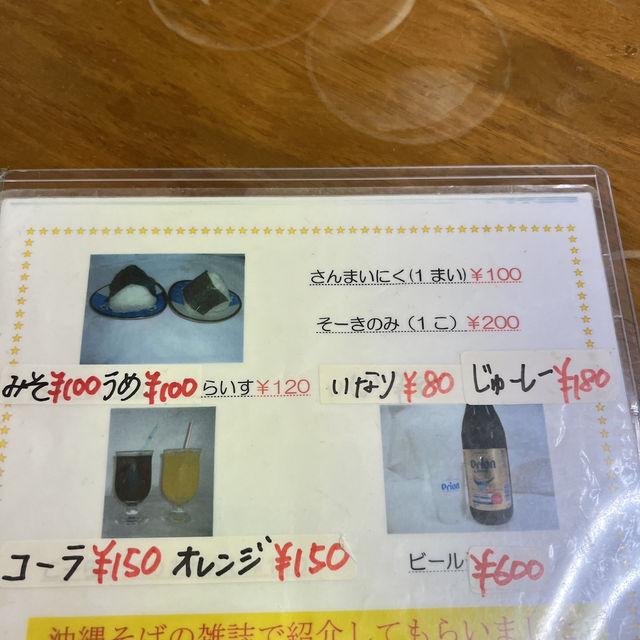 さんまいにく(1まい)¥100
そーきのみ(1こ)¥200
みそ¥100 うめ¥100 らいす¥120 いなり¥80 じゅーしー¥180
Orion
Orion
コーラ¥150 オレンジ¥150 ビール¥600
沖縄そばの雑誌で紹介してもらいまし